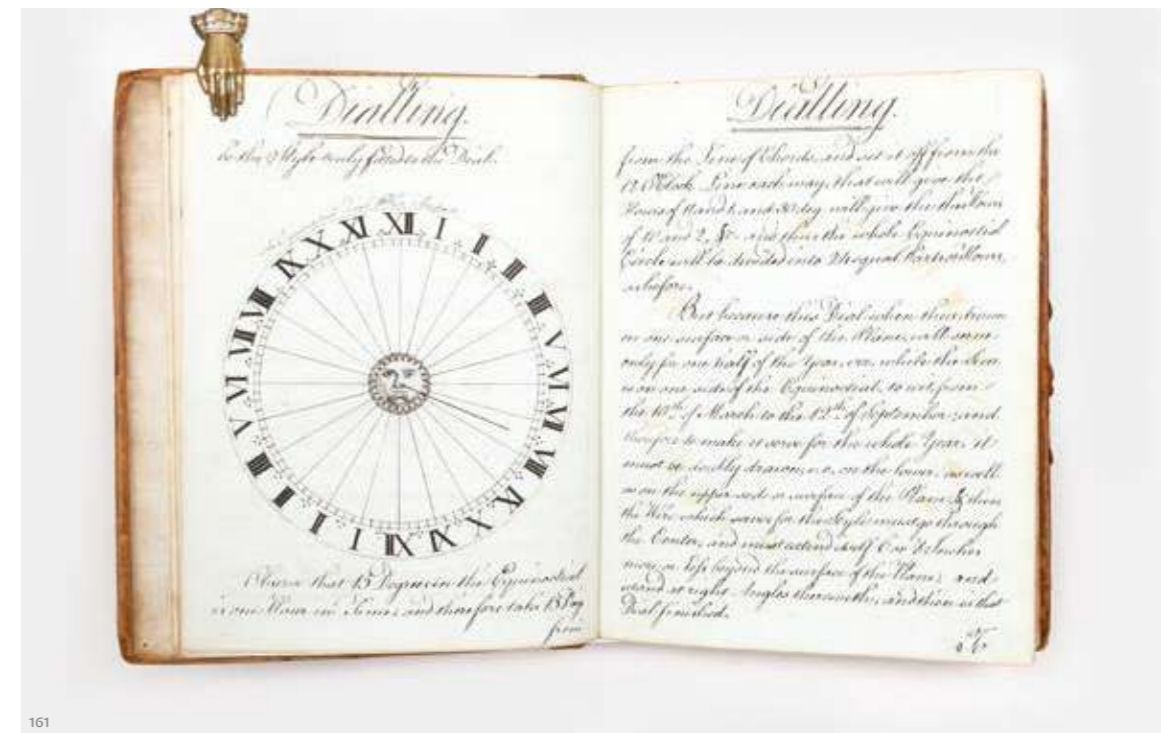 Dialling.
be the Style truly fitted to the Dial.
XII I II III IIII V VI VII VIII IX X XI XII I II III IIII V VI VII VIII IX X XI
Observe that 15 Degrees in the Equinoctial
is one Hour in Time, and therefore take 15 Deg
from
Dialling.
from the Line of Chords and set it off from the
12 O'Clock Line each way, that will give the
Hours of 11 and 1, and 30 deg. will give the Hours
of 10 and 2, &c. and thus the whole Equinoctial
Circle will be divided into 24 equal Parts or Hours,
as before.
But because this Dial when thus drawn
on one surface or side of the Plane, will serve
only for one half of the Year, viz. while the Sun
is on one side of the Equinoctial, to wit, from
the 10th of March to the 12th of September; and
therefore to make it serve for the whole Year, it
must be doubly drawn, on the lower, as well
as on the upper side or surface of the Plane, & then
the Wire which serves for the Style must go through
the Center, and must extend itself 6 or 8 Inches
more or less beyond the surface of the Plane, and
stand at right Angles therewith, and then is that
Dial finished.
161